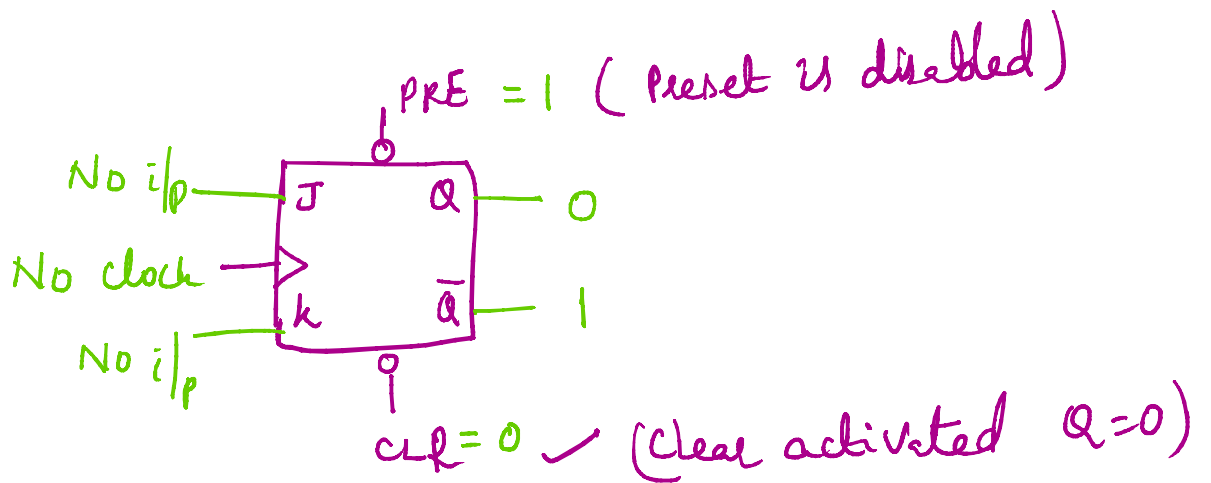 PRE = 1 (Preset is disabled)
No i/p J Q 0
No clock
No i/p k Q̅ 1
CLR = 0 ✓ (Clear activated Q=0)